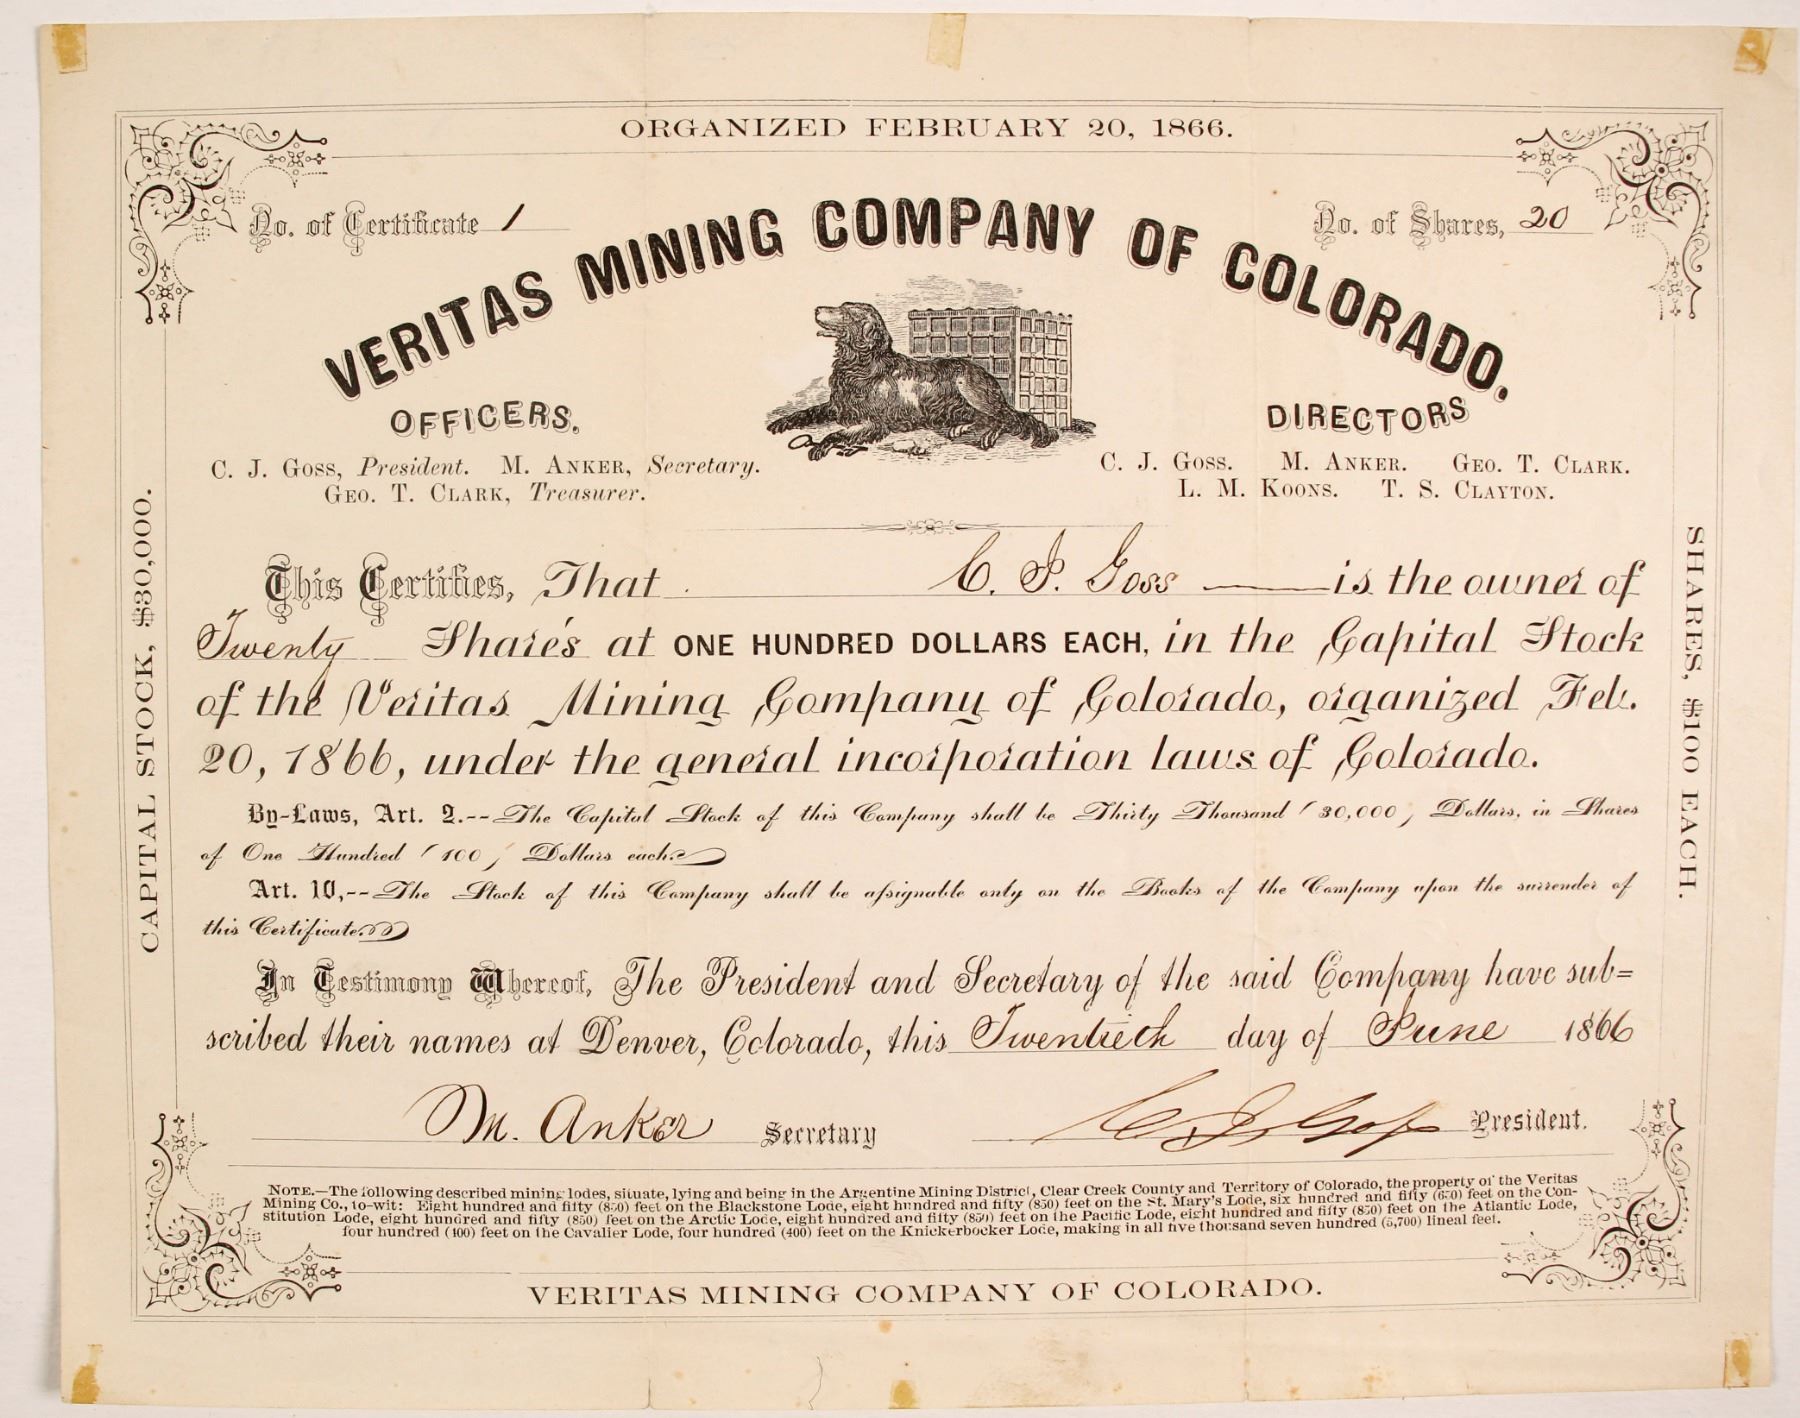 ORGANIZED FEBRUARY 20, 1866.
No. of Certificate 1
No. of Shares, 20
VERITAS MINING COMPANY OF COLORADO.
OFFICERS.
C. J. GOSS, President. M. ANKER, Secretary.
GEO. T. CLARK, Treasurer.
DIRECTORS
C. J. GOSS. M. ANKER. GEO. T. CLARK.
L. M. KOONS. T. S. CLAYTON.
CAPITAL STOCK, $30,000.
SHARES, $100 EACH.
This Certifies, That C. J. Goss is the owner of
Twenty Shares at ONE HUNDRED DOLLARS EACH, in the Capital Stock
of the Veritas Mining Company of Colorado, organized Feb.
20, 1866, under the general incorporation laws of Colorado.
By-Laws, Art. 2.--The Capital Stock of this Company shall be Thirty Thousand (30,000) Dollars, in Shares
of One Hundred (100) Dollars each.
Art. 10,--The Stock of this Company shall be assignable only on the Books of the Company upon the surrender of
this Certificate.
In Testimony Whereof, The President and Secretary of the said Company have sub=
scribed their names at Denver, Colorado, this Twentieth day of June 1866
M. Anker Secretary
C J Goss President.
NOTE.—The following described mining lodes, situate, lying and being in the Argentine Mining District, Clear Creek County and Territory of Colorado, the property of the Veritas
Mining Co., to-wit: Eight hundred and fifty (850) feet on the Blackstone Lode, eight hundred and fifty (850) feet on the St. Mary's Lode, six hundred and fifty (650) feet on the Con-
stitution Lode, eight hundred and fifty (850) feet on the Arctic Lode, eight hundred and fifty (850) feet on the Pacific Lode, eight hundred and fifty (850) feet on the Atlantic Lode,
four hundred (400) feet on the Cavalier Lode, four hundred (400) feet on the Knickerbocker Lode, making in all five thousand seven hundred (5,700) lineal feet.
VERITAS MINING COMPANY OF COLORADO.